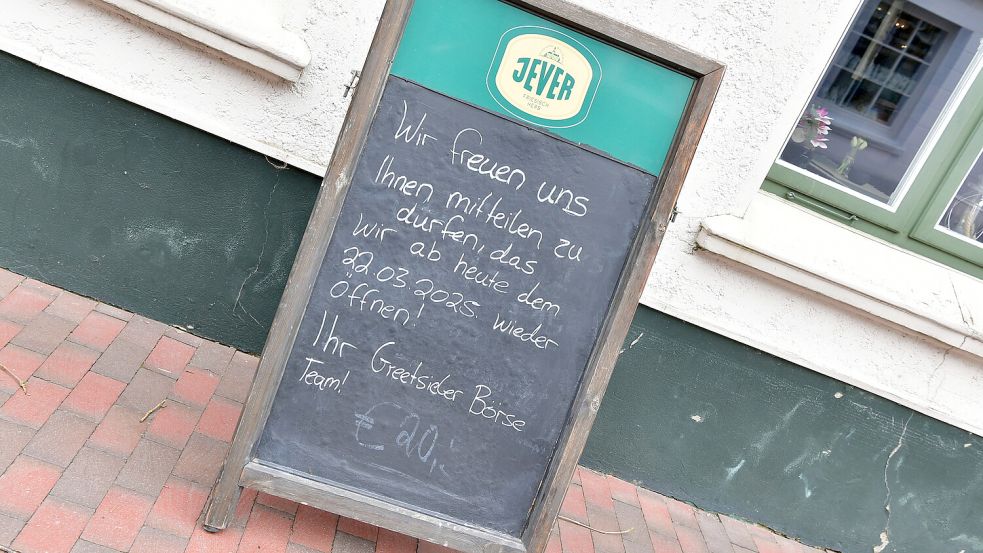 JEVER
FRIESISCH
HERB
Wir freuen uns
Ihnen mitteilen zu
dürfen, das
wir ab heute dem
22.03.2025. wieder
öffnen!
Ihr Greetsieler Börse
Team!
€ 20,-